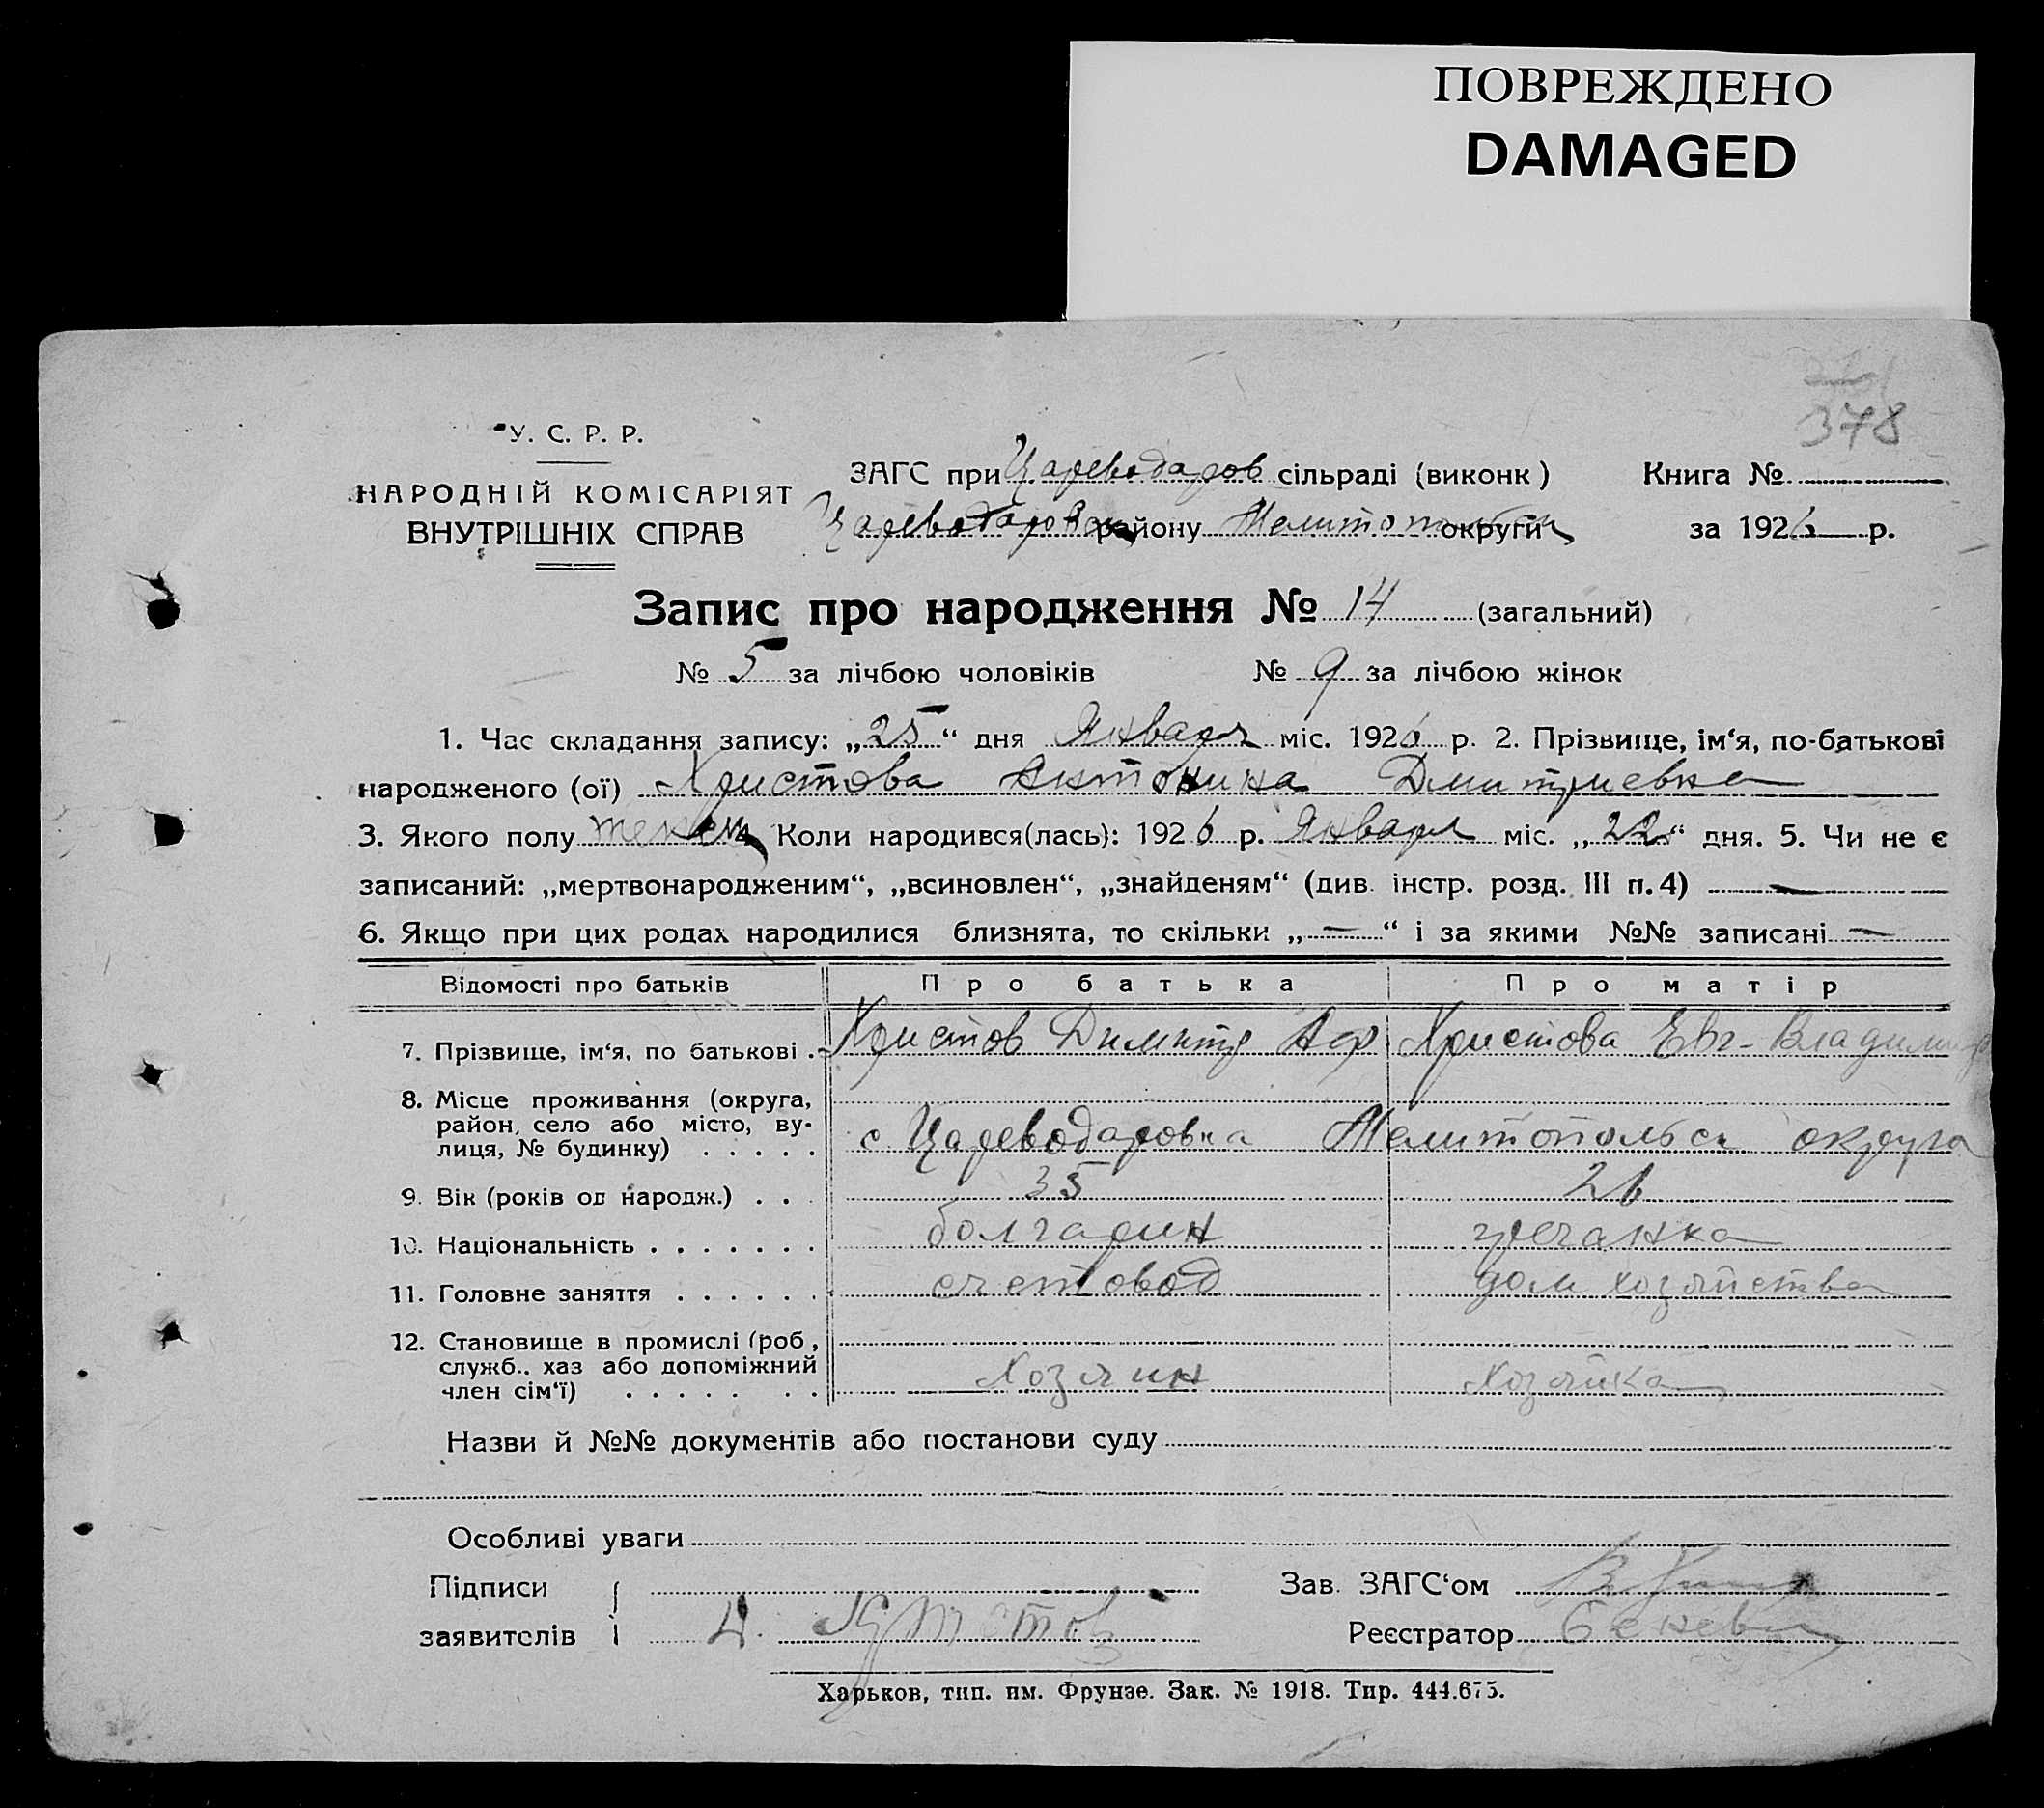 ПОВРЕЖДЕНО
DAMAGED
378
У. С. Р. Р.
НАРОДНІЙ КОМІСАРІЯТ
ВНУТРІШНІХ СПРАВ
ЗАГС при Цареводаров сільраді (виконк)
Книга №
Цареводаровск району Мелитопольск округи
за 1926 р.
Запис про народження № 14 (загальний)
№ 5 за лічбою чоловіків № 9 за лічбою жінок
1. Час складання запису: „25“ дня Января міс. 1926 р. 2. Прізвище, ім‘я, по-батькові
народженого (ої) Христова Антонина Дмитриевна
3. Якого полу женск Коли народився(лась): 1926 р. Января міс. „22“ дня. 5. Чи не є
записаний: „мертвонародженим“, „всиновлен“, „знайденям“ (див. інстр. розд. III п. 4) —
6. Якщо при цих родах народилися близнята, то скільки „—“ і за якими №№ записані —
Відомості про батьків Про батька Про матір
7. Прізвище, ім‘я, по батькові . Христов Димитр Аф Христова Евг- Владимир
8. Місце проживання (округа,
район, село або місто, ву-
лиця, № будинку) . . . . . с. Цареводаровка Мелитопольск округа
9. Вік (років од народж.) . . . 35 26
10. Національність . . . . . . . болгарин гречанка
11. Головне заняття . . . . . . счетовод дом хозяйства
12. Становище в промислі (роб,
служб., хаз або допоміжний
член сім‘ї) . . . . . . . Хозяин Хозяйка
Назви й №№ документів або постанови суду
Особливі уваги
Підписи
Зав. ЗАГС‘ом
заявителів Д. Христов
Реєстратор
Харьков, тип. им. Фрунзе. Зак. № 1918. Тир. 444.675.